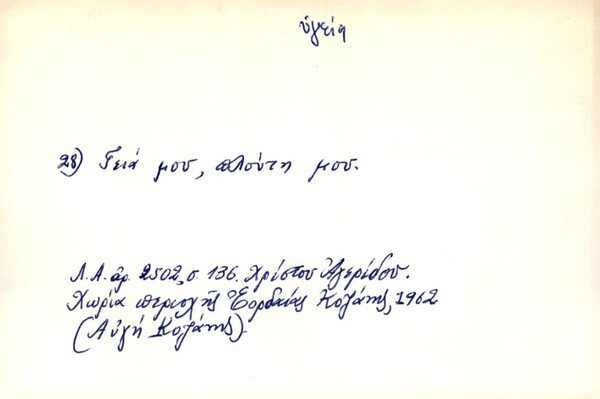 ὑγεία
28) Γειά μου, πλούτη μου.
Λ.Α. ἀρ. 2502, σ. 136. Χρίστου Ἀγερίδου.
Χωρία περιοχῆς Ἑορδαίας Κοζάνης, 1962
(Αὐγή Κοζάνης).